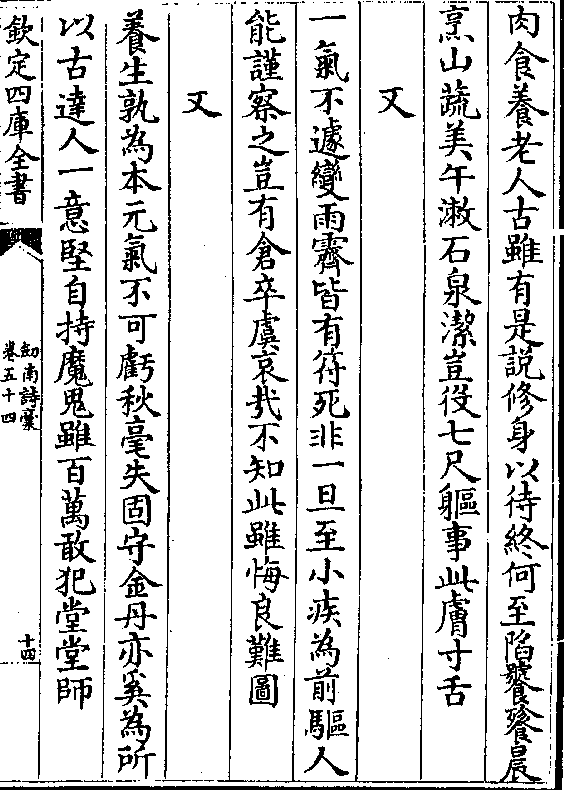 肉食養老人古雖有是說修身以待終何至陷饕餮晨
烹山蔬美午漱石泉潔豈役七尺軀事此膚寸舌
又
一氣不遽變雨霽皆有符死非一旦至小疾為前驅人
能謹察之豈有倉卒虞哀哉不知此雖悔良難圖
又
養生孰為本元氣不可虧秋毫失固守金丹亦奚為所
以古達人一意堅自持魔鬼雖百萬敢犯堂堂師
欽定四庫全書
劒南詩稾
卷五十四
十四